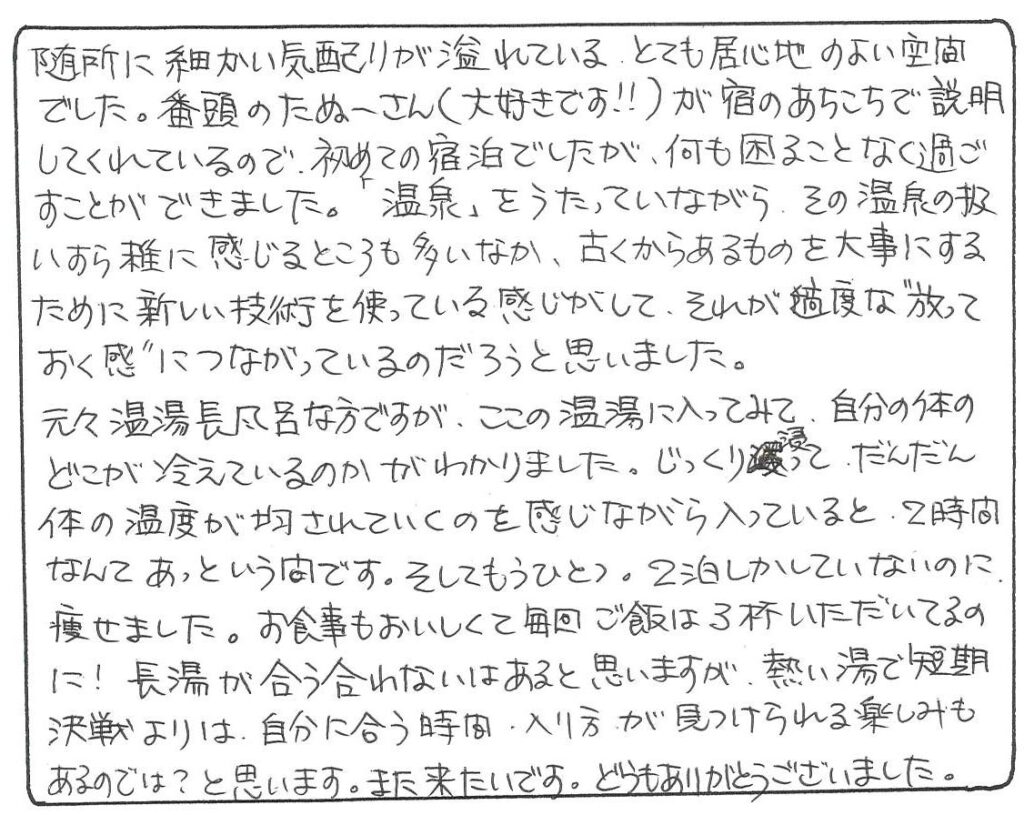 随所に細かい気配りが溢れている、とても居心地のよい空間
でした。番頭のたぬーさん(大好きです!!)が宿のあちこちで説明
してくれているので、初めての宿泊でしたが、何も困ることなく過ご
すことができました。「温泉」をうたっていながら、その温泉の扱
いすら雑に感じるところも多いなか、古くからあるものを大事にする
ために新しい技術を使っている感じがして、それが適度な"放って
おく感"につながっているのだろうと思いました。
元々温湯長風呂な方ですが、ここの温湯に入ってみて、自分の体の
どこが冷えているのかがわかりました。じっくり浸って、だんだん
体の温度が均されていくのを感じながら入っていると、2時間
なんてあっという間です。そしてもうひとつ。2泊しかしていないのに、
痩せました。お食事もおいしくて毎回ご飯は3杯いただいてるの
に!長湯が合う合わないはあると思いますが、熱い湯で短期
決戦よりは、自分に合う時間・入り方が見つけられる楽しみも
あるのでは?と思います。また来たいです。どうもありがとうございました。